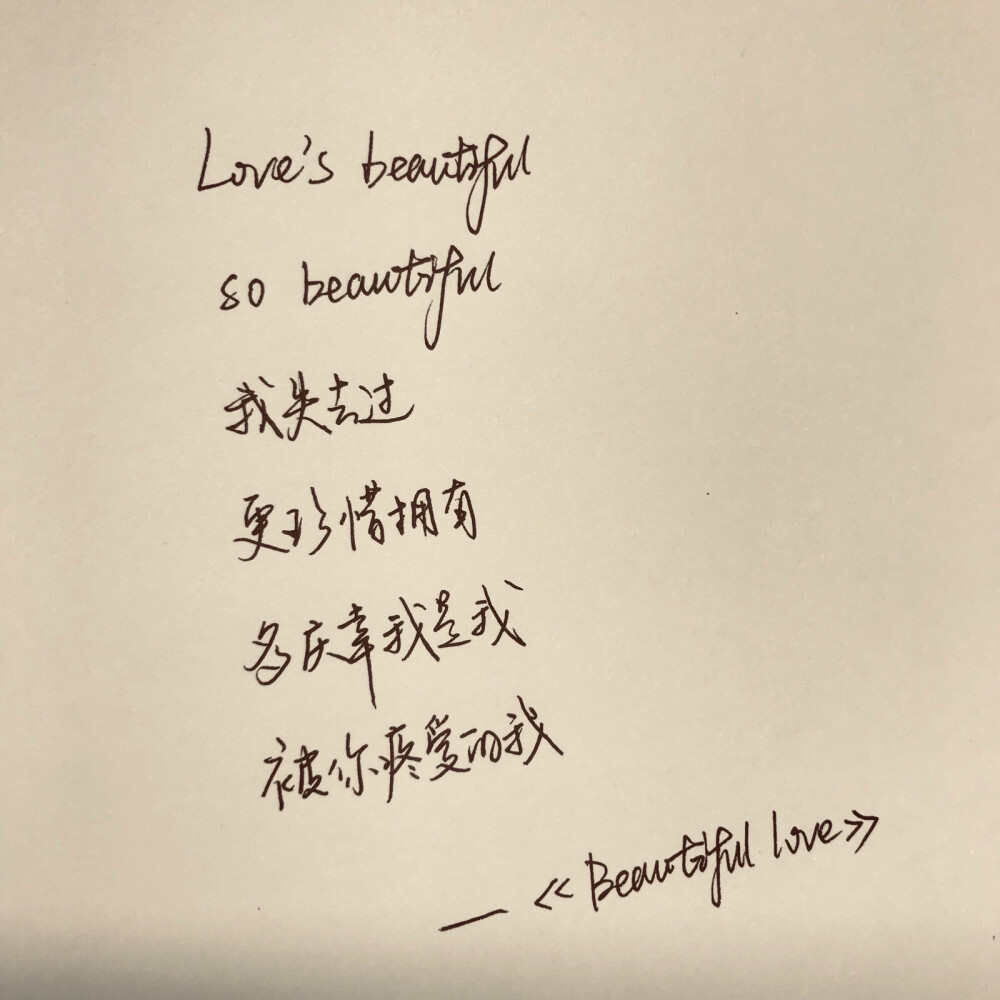 Love's beautiful
so beautiful
我失去过
更珍惜拥有
多庆幸我是我
被你疼爱的我
—《Beautiful love》